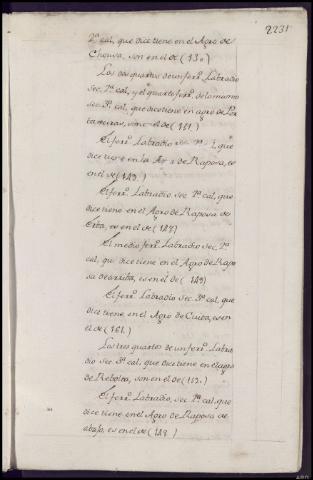 2231
2ª cal, que dice tiene en el Agro de
Chouva, son en el de (130)
Los dos quartos de un ferº Labradio
Sec. 2ª cal, y el quarto ferº de lo mismo
sec. 3ª cal, que dice tiene en agro de
son en el de (161.)
El ferº Labradio sec. que
dice tiene en la de Raposa, es
en el de (149.)
El ferº Labradio sec. 2ª cal, que
dice tiene en el Agro de Raposa de
es en el de (149)
El medio ferº Labradio sec. 2ª
cal, que dice tiene en el Agro de Rapo
sa de arriba, es en el de (149)
El ferº Labradio sec. 3ª cal, que
dice tiene en el Agro de es en
el de (161.)
Los tres quartos de un ferº Labra
dio sec. 3ª cal, que dice tiene en el agro
de son en el de
El ferº Labradio, sec. 2ª cal, que
dice tiene en el Agro de Raposa de
abajo, es en el de (149.)